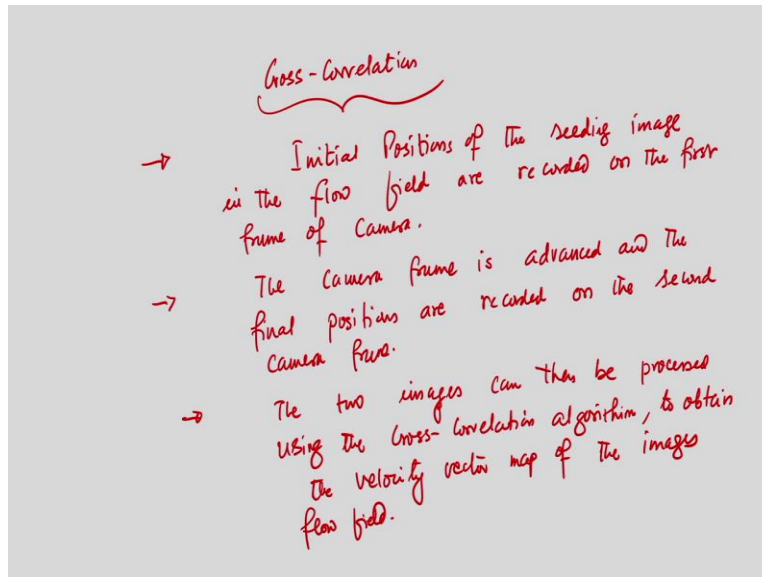 Cross-Correlation
→ Initial Positions of the seeding image
in the flow field are recorded on the first
frame of Camera.
→ The Camera frame is advanced and the
final positions are recorded on the second
camera frame.
→ The two images can then be processed
using the Cross-Correlation algorithim, to obtain
the velocity vector map of the images
flow field.